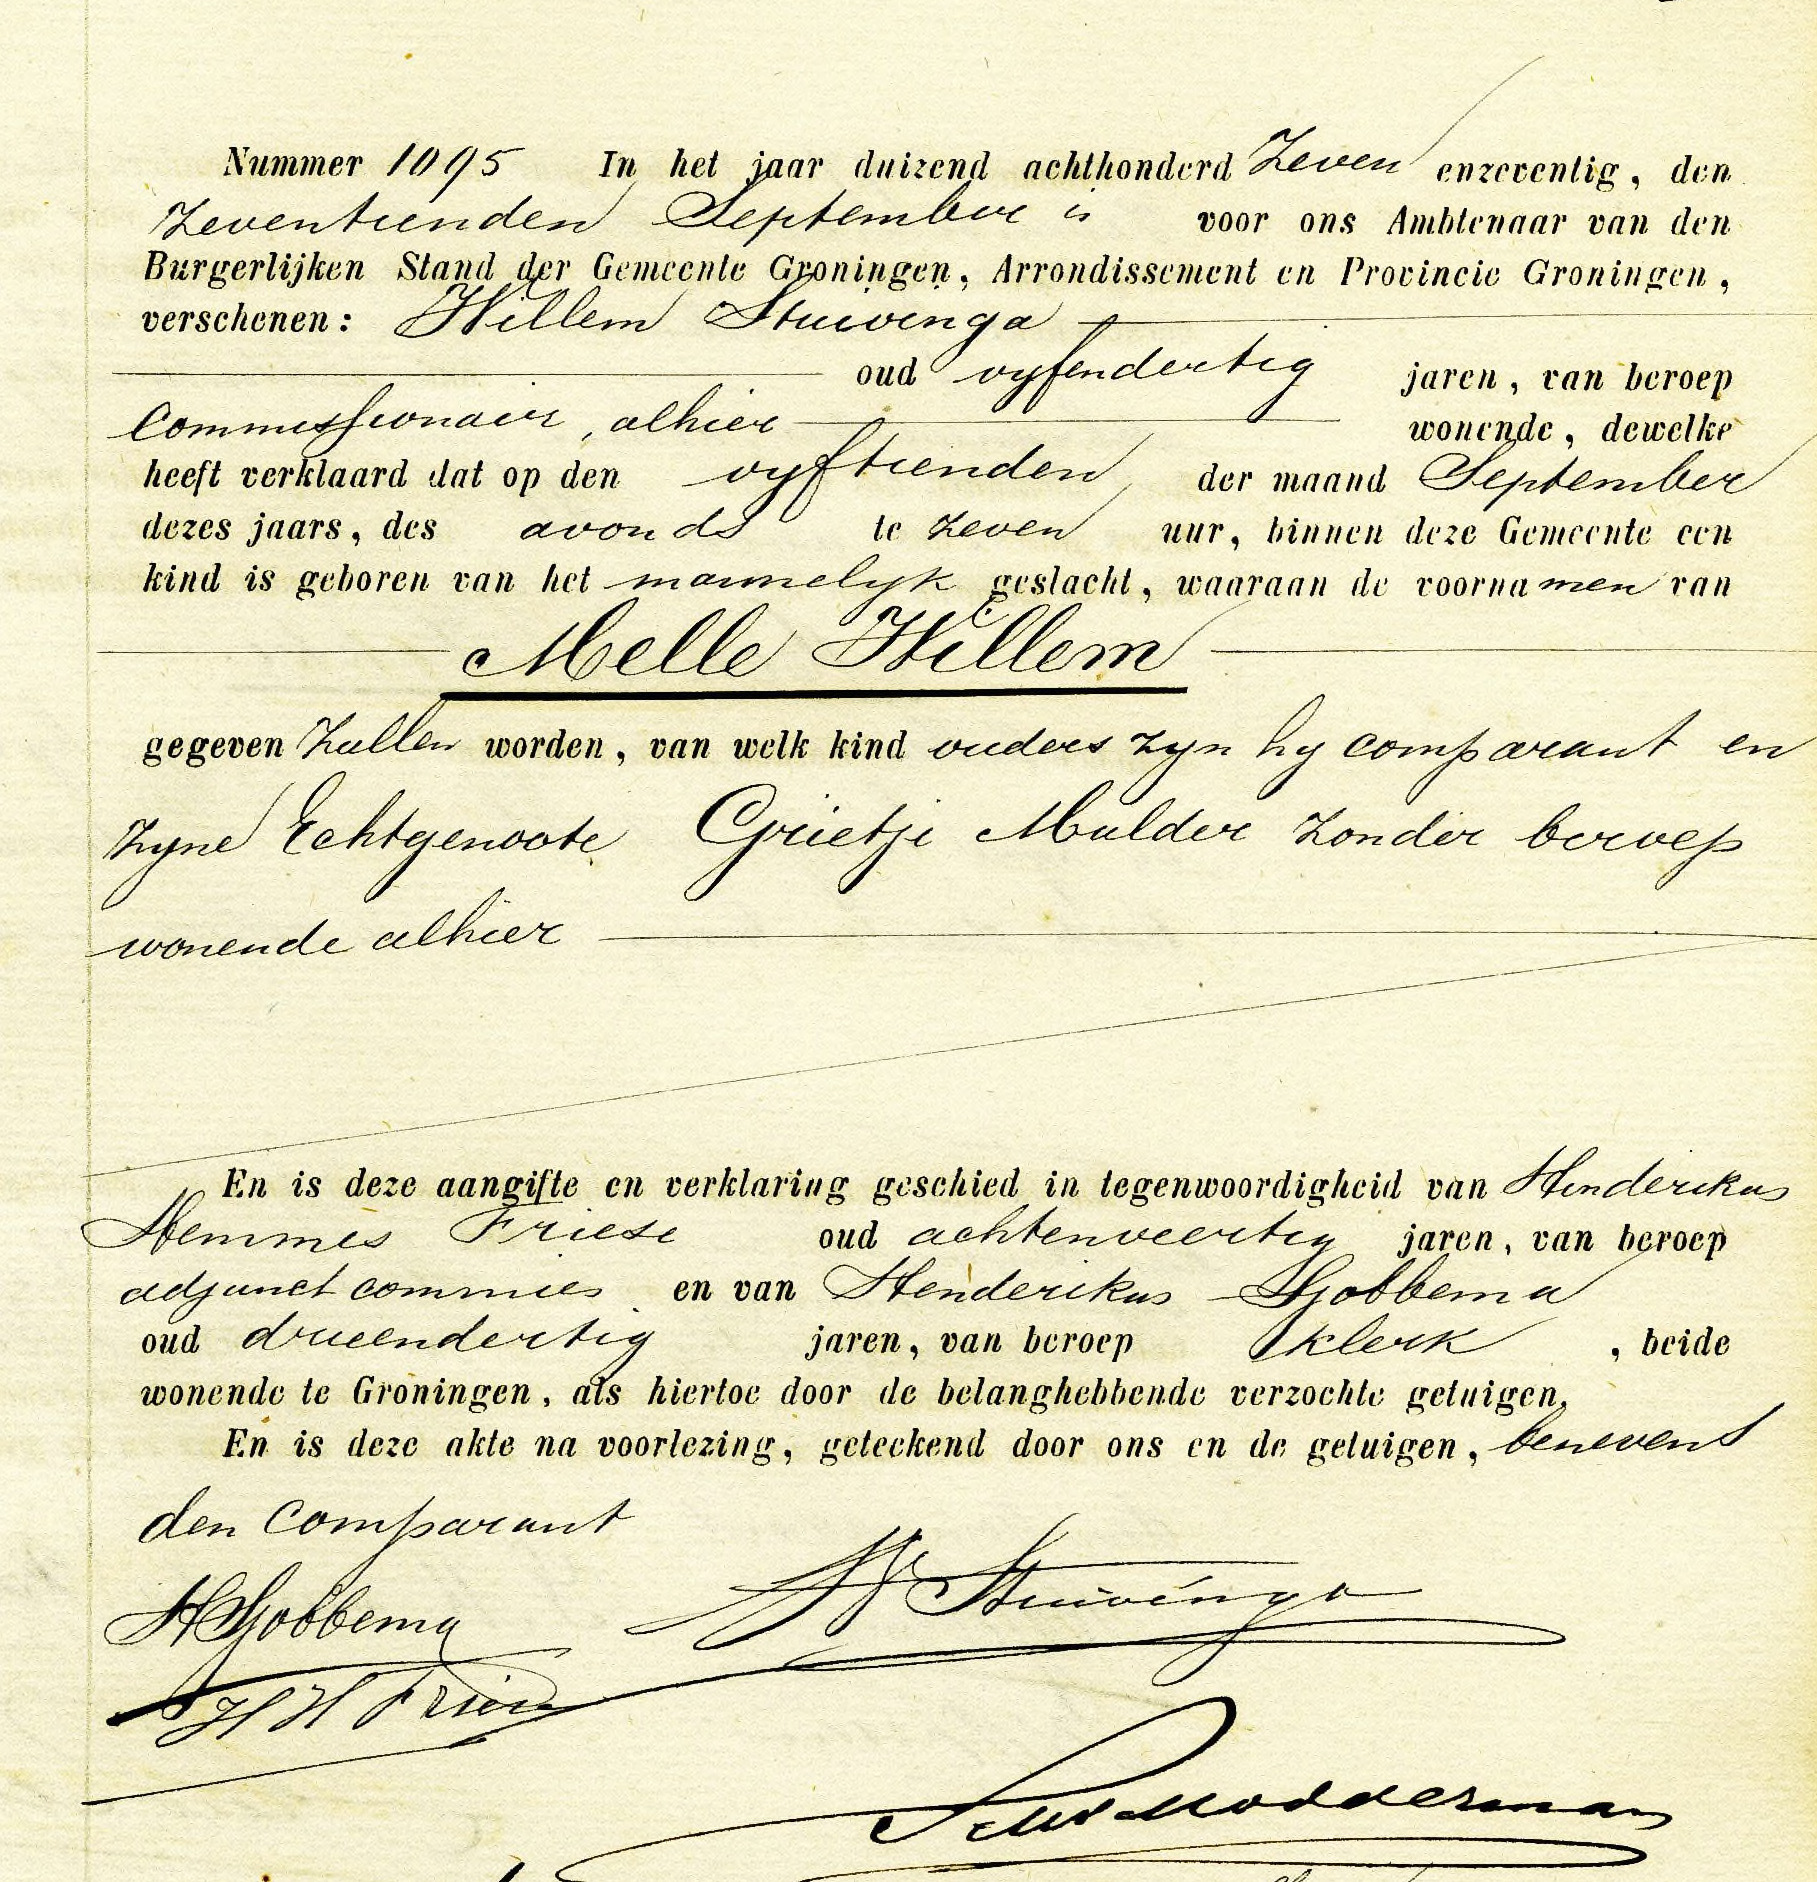 Nummer 1095 In het jaar duizend achthonderd Zeven enzeventig, den
Zeventienden September is voor ons Ambtenaar van den
Burgerlijken Stand der Gemeente Groningen, Arrondissement en Provincie Groningen,
verschenen: Willem Stuivinga
oud vyfendertig jaren, van beroep
Commissionair, alhier wonende, dewelke
heeft verklaard dat op den vyftienden der maand September
dezes jaars, des avonds te zeven uur, binnen deze Gemeente een
kind is geboren van het mannelyk geslacht, waaraan de voornamen van
Melle Willem
gegeven Zullen worden, van welk kind ouders zyn hy comparant en
Zyne Echtgenoote Grietje Mulder Zonder beroep
wonende alhier
En is deze aangifte en verklaring geschied in tegenwoordigheid van Henderikus
Hemmes Friese oud achtenveertig jaren, van beroep
adjunct commies en van Henderikus Sjobbema
oud drieendertig jaren, van beroep klerk, beide
wonende te Groningen, als hiertoe door de belanghebbende verzochte getuigen.
En is deze akte na voorlezing, geteekend door ons en de getuigen, benevens
den Comparant
HSjobbema W Stuivinga
HH Friese
Modderman